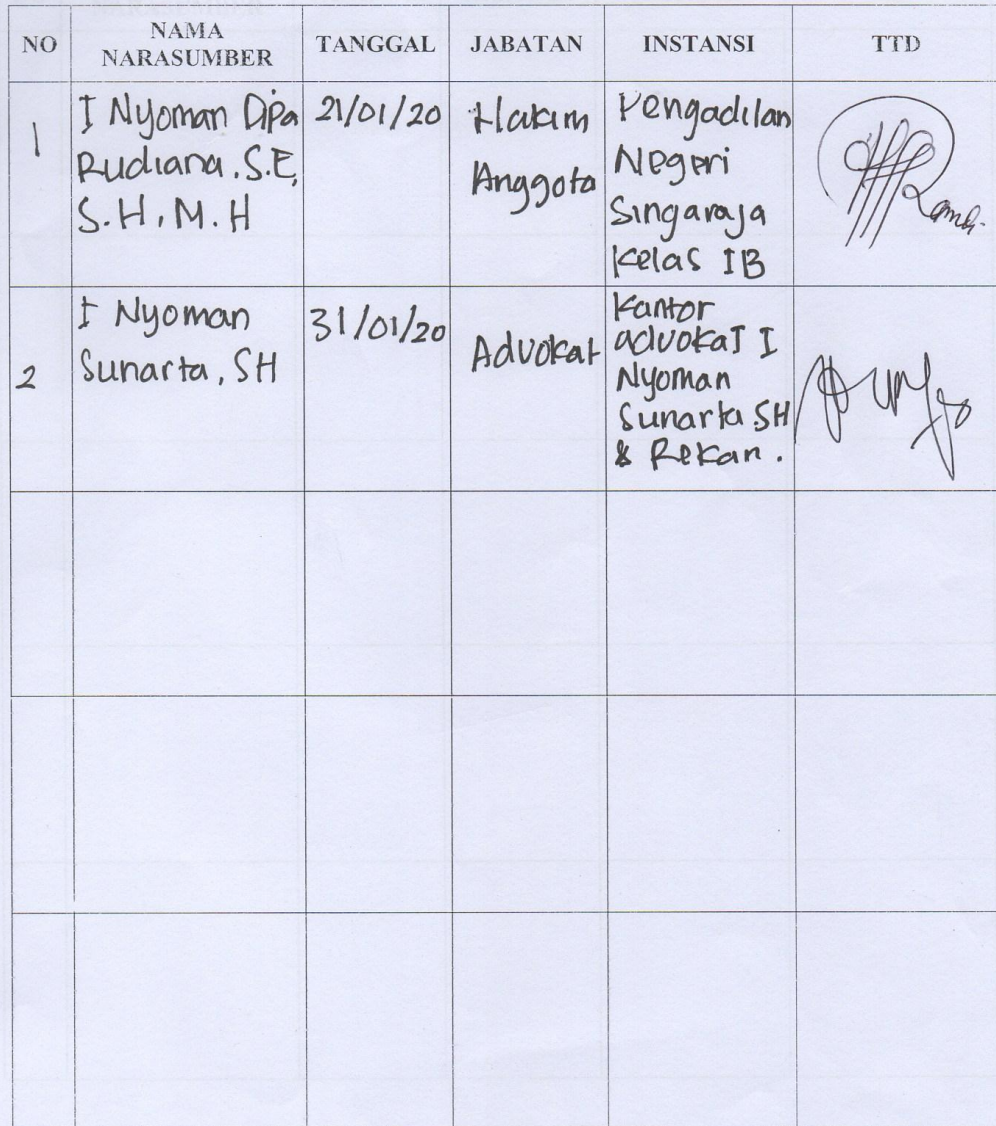 NO
NAMA
NARASUMBER
TANGGAL
JABATAN
INSTANSI
TTD
1
I Nyoman Dipa
Rudiana, S.E,
S.H, M.H
21/01/20
Hakim
Anggota
Pengadilan
Negeri
Singaraja
Kelas IB
2
I Nyoman
Sunarta, SH
31/01/20
Advokat
Kantor
advokat I
Nyoman
Sunarta SH
& Rekan.